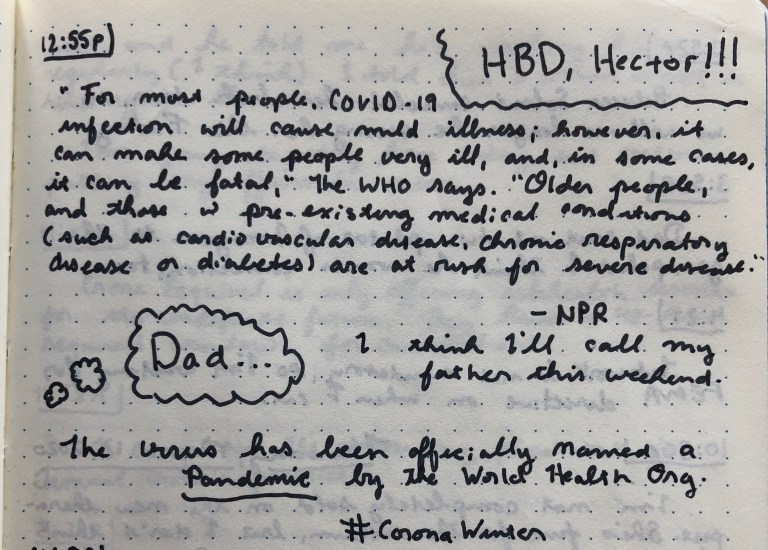 12:55p)
HBD, Hector!!!
"For most people, COVID-19
infection will cause mild illness; however, it
can make some people very ill, and, in some cases,
it can be fatal," the WHO says. "Older people,
and those w pre-existing medical conditions
(such as cardiovascular disease, chronic respiratory
disease or diabetes) are at risk for severe disease."
- NPR
Dad...
I think I'll call my
father this weekend.
The virus has been officially named a
Pandemic by the World Health Org.
#CoronaWinter